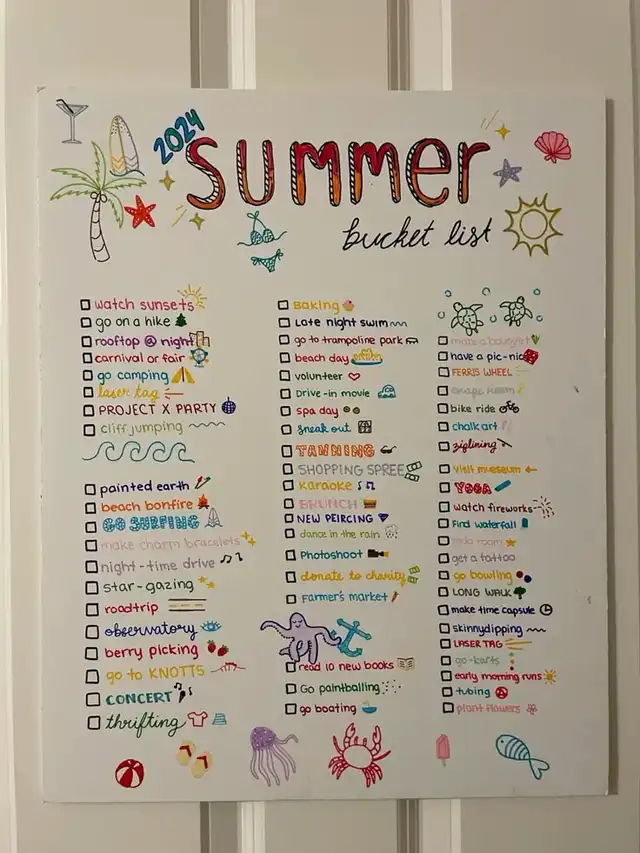 2024
SUMMER
bucket list
watch sunsets
go on a hike
rooftop @ night
carnival or fair
go camping
laser tag
PROJECT X PARTY
cliff jumping
painted earth
beach bonfire
GO SURFING
make charm bracelets
night-time drive
star-gazing
roadtrip
observatory
berry picking
go to KNOTTS
CONCERT
thrifting
BAKING
Late night swim
go to trampoline park
beach day
volunteer
Drive-in movie
spa day
sneak out
TANNING
SHOPPING SPREE
Karaoke
BRUNCH
NEW PEIRCING
dance in the rain
Photoshoot
donate to charity
Farmer's market
read 10 new books
Go paintballing
go boating
make a bouquet
have a pic-nic
FERRIS WHEEL
escape room
bike ride
chalk art
ziplining
visit museum
YOGA
watch fireworks
Find waterfall
redo room
get a tattoo
go bowling
LONG WALK
make time capsule
skinnydipping
LASER TAG
go-karts
early morning runs
tubing
plant flowers